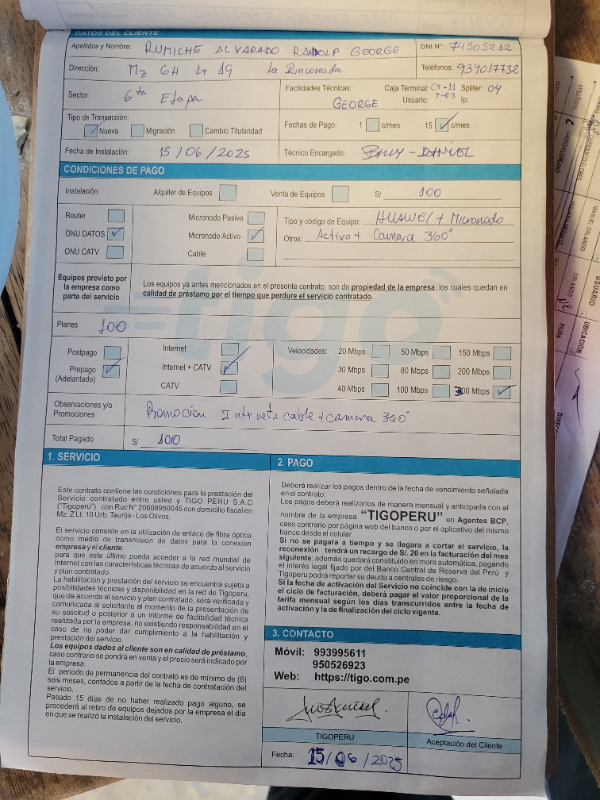 DATOS DEL CLIENTE
Apellidos y Nombre: RUMICHE ALVARADO RANDOLP GEORGE DNI N°: 71505212
Dirección: Mz GH Lt 19 La Rinconada Teléfonos: 939017732
Sector: 6ta Etapa Facilidades Técnicas: GEORGE Caja Terminal: CT-11 Spliter: 04
Usuario: T-03 Ip:
Tipo de Transacción:
Nueva Migración Cambio Titularidad Fechas de Pago: 1 c/mes 15 c/mes
Fecha de Instalación: 15/06/2025 Técnico Encargado: - DANIEL
CONDICIONES DE PAGO
Instalación Alquiler de Equipos Venta de Equipos S/ 100
Router Micronodo Pasivo Tipo y código de Equipo: HUAWEI + Micronodo
ONU DATOS Micronodo Activo Otros: Activo + Camara 360°
ONU CATV Cable
Equipos provisto por la empresa como parte del servicio
Los equipos ya antes mencionados en el presente contrato, son de propiedad de la empresa, los cuales quedan en
calidad de préstamo por el tiempo que perdure el servicio contratado.
tigo
Planes 100
Postpago Internet Velocidades: 20 Mbps 50 Mbps 150 Mbps
Prepago (Adelantado) Internet + CATV 30 Mbps 80 Mbps 200 Mbps
CATV 40 Mbps 100 Mbps 300 Mbps
Observaciones y/o Promociones Promoción Internet + cable + camara 360°
Total Pagado S/ 100
1. SERVICIO
Este contrato contiene las condiciones para la prestación del
Servicio contratado entre usted y TIGO PERU S.A.C
("Tigoperu") con Ruc N° 20608950045 con domicilio fiscal en
Mz. Z Lt. 10 Urb. Taurija - Los Olivos.
El servicio consiste en la utilización de enlace de fibra óptica
como medio de transmisión de datos para la conexión
empresa y el cliente.
para que este último pueda acceder a la red mundial de
Internet con las características técnicas de acuerdo al servicio
y plan contratado.
La habilitación y prestación del servicio se encuentra sujeta a
posibilidades técnicas y disponibilidad en la red de Tigoperu,
que de acuerdo al servicio y plan contratado, será verificada y
comunicada al solicitante al momento de la presentación de
su solicitud o posterior a un informe de factibilidad técnica
realizada por la empresa, no existiendo responsabilidad en el
caso de no poder dar cumplimiento a la habilitación y
prestación del servicio.
Los equipos dados al cliente son en calidad de préstamo,
caso contrario se pondrá en venta y el precio será indicado por
la empresa.
El periodo de permanencia del contrato es de mínimo de (6)
seis meses, contados a partir de la fecha de contratación del
servicio.
Pasado 15 días de no haber realizado pago alguno, se
procederá al retiro de equipos dejados por la empresa el día
en que se realizó la instalación del servicio.
2. PAGO
Deberá realizar los pagos dentro de la fecha de vencimiento señalada
en el contrato.
Los pagos deberá realizarlos de manera mensual y anticipada con el
nombre de la empresa "TIGOPERU" en Agentes BCP,
caso contrario por página web del banco o por el aplicativo del mismo
banco desde el celular.
Si no se pagará a tiempo y se llegara a cortar el servicio, la
reconexión tendrá un recargo de S/. 20 en la facturación del mes
siguiente; además quedará constituido en mora automática, pagando
el interés legal fijado por del Banco Central de Reserva del Perú y
Tigoperu podrá reportar su deuda a centrales de riesgo.
Si la fecha de activación del Servicio no coincide con la de inicio
el ciclo de facturación, deberá pagar el valor proporcional de la
tarifa mensual según los días transcurridos entre la fecha de
activación y la de finalización del ciclo vigente.
3. CONTACTO
Móvil: 993995611
950526923
Web: https://tigo.com.pe
TIGOPERU Aceptación del Cliente
Fecha: 15/06/2025
USUARIO
UBICACION